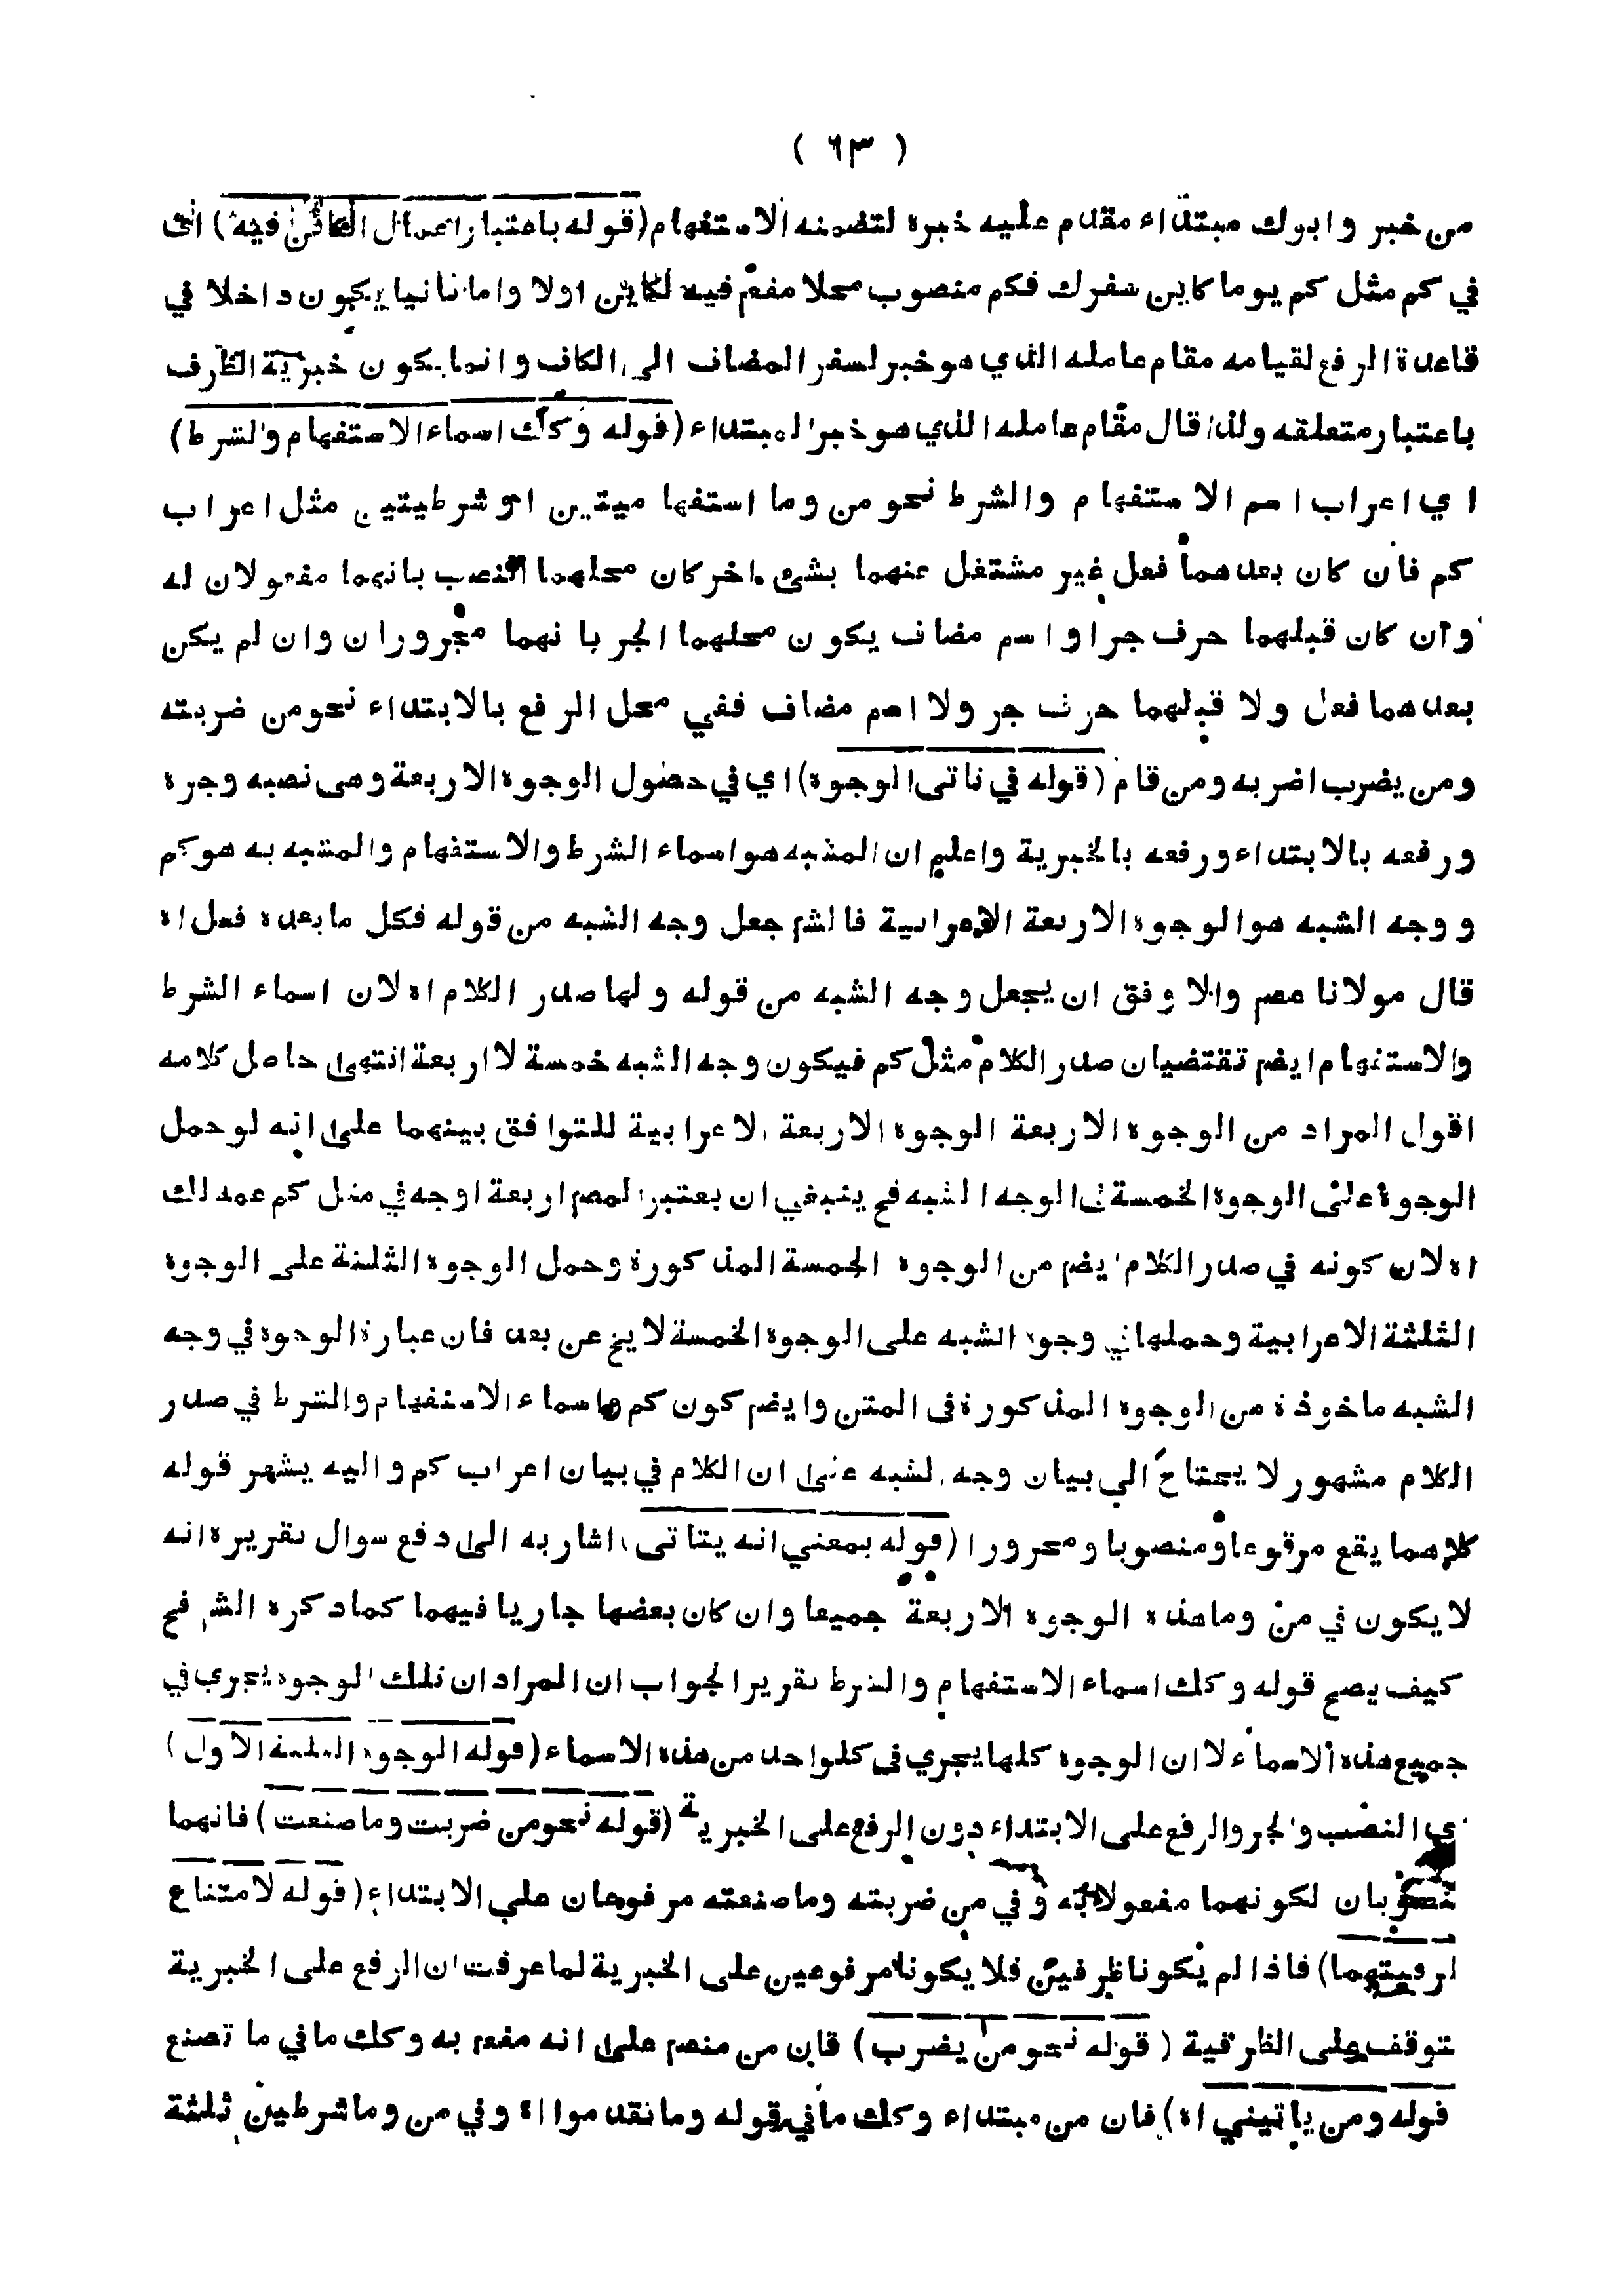 ( ٦٣ )
من خبر وابوك مبتداء مقدم عليه خبره لتضمنه الاستفهام (قوله باعتبار اعمال الكائن فيه) اى
في كم مثل كم يوما كاين سفرك فكم منصوب محلا مفعم فيه لكاين اولا واما ثانيا يكون داخلا في
قاعدة الرفع لقيامه مقام عامله الذي هو خبر لسفر المضاف الى الكاف وانما يكون خبرية الظرف
باعتبار متعلقه ولذا قال مقام عامله الذي هو خبر المبتداء (قوله وكك اسماء الاستفهام والشرط)
اي اعراب اسم الاستفهام والشرط نحو من وما استفهاميتين او شرطيتين مثل اعراب
كم فان كان بعدهما فعل غير مشتغل عنهما بشئ اخر كان محلهما النصب بانهما مفعولان له
وان كان قبلهما حرف جر او اسم مضاف يكون محلهما الجر بانهما مجروران وان لم يكن
بعدهما فعل ولا قبلهما حرف جر ولا اسم مضاف ففي محل الرفع بالابتداء نحو من ضربته
ومن يضرب اضربه ومن قام (قوله في تاتى الوجوه) اي في حصول الوجوه الاربعة وهى نصبه وجره
ورفعه بالابتداء ورفعه بالخبرية واعلم ان المشبه هو اسماء الشرط والاستفهام والمشبه به هو كم
ووجه الشبه هو الوجوه الاربعة الاعرابية فالشر جعل وجه الشبه من قوله فكل ما بعده فعل اه
قال مولانا عصم والاوفق ان يجعل وجه الشبه من قوله ولها صدر الكلام اه لان اسماء الشرط
والاستفهام ايضم تقتضيان صدر الكلام مثل كم فيكون وجه الشبه خمسة لا اربعة انتهى حاصل كلامه
اقول المراد من الوجوه الاربعة الوجوه الاربعة الاعرابية للتوافق بينهما على انه لو حمل
الوجوه على الوجوه الخمسة في الوجه الشبه فح ينبغي ان يعتبر المصم اربعة اوجه في مثل كم عمه لك
اه لان كونه في صدر الكلام ايضم من الوجوه الخمسة المذكورة وحمل الوجوه الثلثة على الوجوه
الثلثة الاعرابية وحملها في وجوه الشبه على الوجوه الخمسة لا يخ عن بعد فان عبارة الوجوه في وجه
الشبه ماخوذة من الوجوه المذكورة فى المتن وايضم كون كم واسماء الاستفهام والشرط في صدر
الكلام مشهور لا يحتاج الى بيان وجه الشبه على ان الكلام في بيان اعراب كم واليه يشهر قوله
كلاهما يقع مرفوعا ومنصوبا ومجرورا (قوله بمعني انه يتاتى) اشار به الى دفع سوال تقريره انه
لا يكون في من وما هذه الوجوه الاربعة جميعا وان كان بعضها جاريا فيهما كما ذكره الشر فح
كيف يصح قوله وكك اسماء الاستفهام والشرط تقرير الجواب ان المراد ان تلك الوجوه يجري في
جميع هذه الاسماء لا ان الوجوه كلها يجري فى كلواحد من هذه الاسماء (قوله الوجوه الثلثة الاول)
ي النصب والجر والرفع على الابتداء دون الرفع على الخبرية (قوله نحو من ضربت وما صنعت) فانهما
نصوبان لكونهما مفعولا به وفي من ضربته وما صنعته مرفوعان على الابتداء (قوله لامتناع
لرفيتهما) فاذا لم يكونا ظرفين فلا يكونا مرفوعين على الخبرية لما عرفت ان الرفع على الخبرية
تتوقف على الظرفية (قوله نحو من يضرب) فان من منصم على انه مفعم به وكك ما في ما تصنع
قوله ومن ياتيني اه) فان من مبتداء وكك ما في قوله وما تقدموا اه وفي من وما شرطين ثلثة